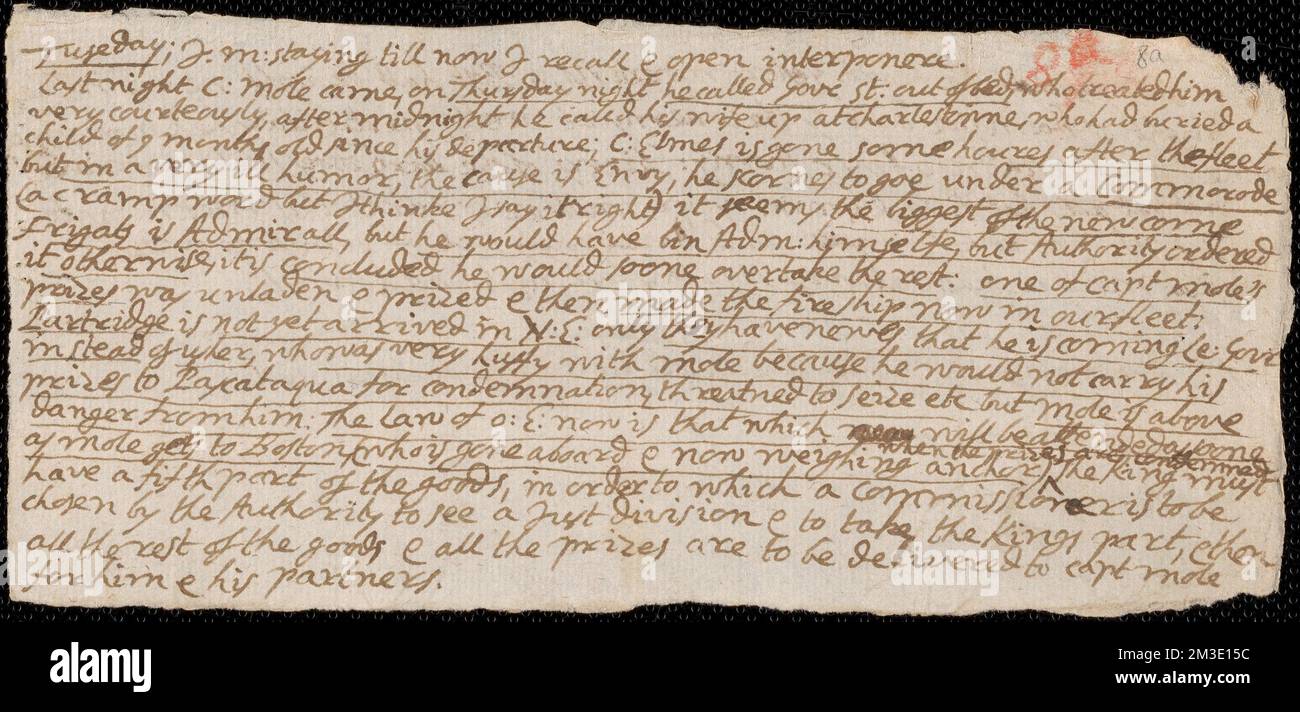 Tuseday; J: m: staying till now I recall & open interponere.
8a
Last night C: Mole came, on Thursday night he called Govr St: out of bed, who treated him
very courteously, after midnight he caled his wife up at charlestonne, who had buried a
child of 9 months old since his departure; C: Elmes is gone some houres after the fleet
but in a very ill humor, the cause is Envy, he scornes to goe under a Commorode
(a cramp word but I thinke I say it right) it seems the biggest of the new come
Frigats is Admirall, but he would have bin Adm: himselfe, but Authority ordered
it otherwise, it is concluded he would soone overtake the rest: one of capt mole's
prizes was unladen & prized & then made the fire ship now in our fleet:
Partridge is not yet arrived in N: E: only they have newes that he is coming Le: Govr
instead of usher, who was very huffy with mole because he would not carry his
prizes to Paxcataqua for condemnation, threatned to seize etc but mole is above
danger from him. The Law of o: E: now is that which will be attended as soone
as mole gets to Boston (who is gone aboard & now weighing anchor) when the prizes are condemned the King must
have a fifth part of the goods, in order to which a commissioner is to be
chosen by the Authority to see a just division & to take the Kings part, & then
all the rest of the goods & all the prizes are to be delivered to capt mole
for him & his partners.
alamy
Image ID: 2M3E15C
www.alamy.com